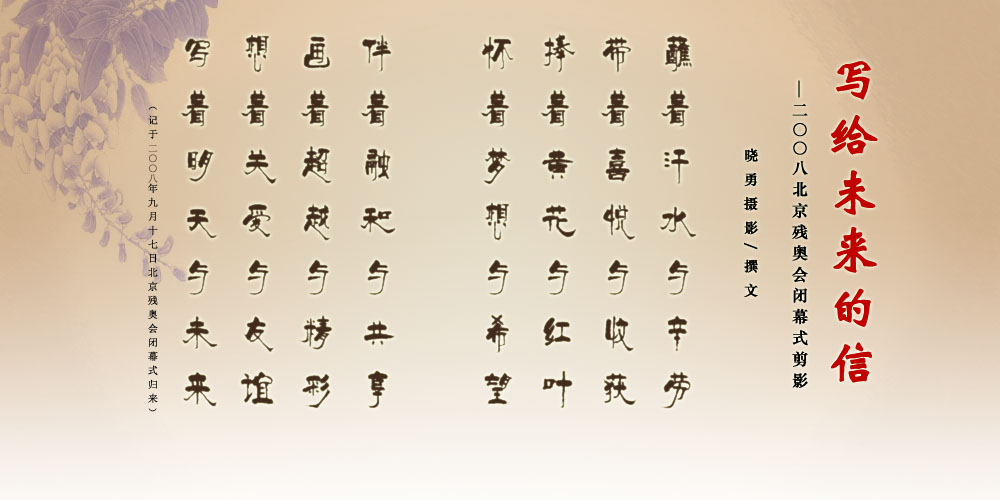 写给未来的信
—二〇〇八北京残奥会闭幕式剪影
晓勇摄影/撰文
蘸着汗水与辛劳
带着喜悦与收获
捧着黄花与红叶
怀着梦想与希望
伴着融和与共享
画着超越与精彩
想着关爱与友谊
写着明天与未来
(记于二〇〇八年九月十七日北京残奥会闭幕式归来)